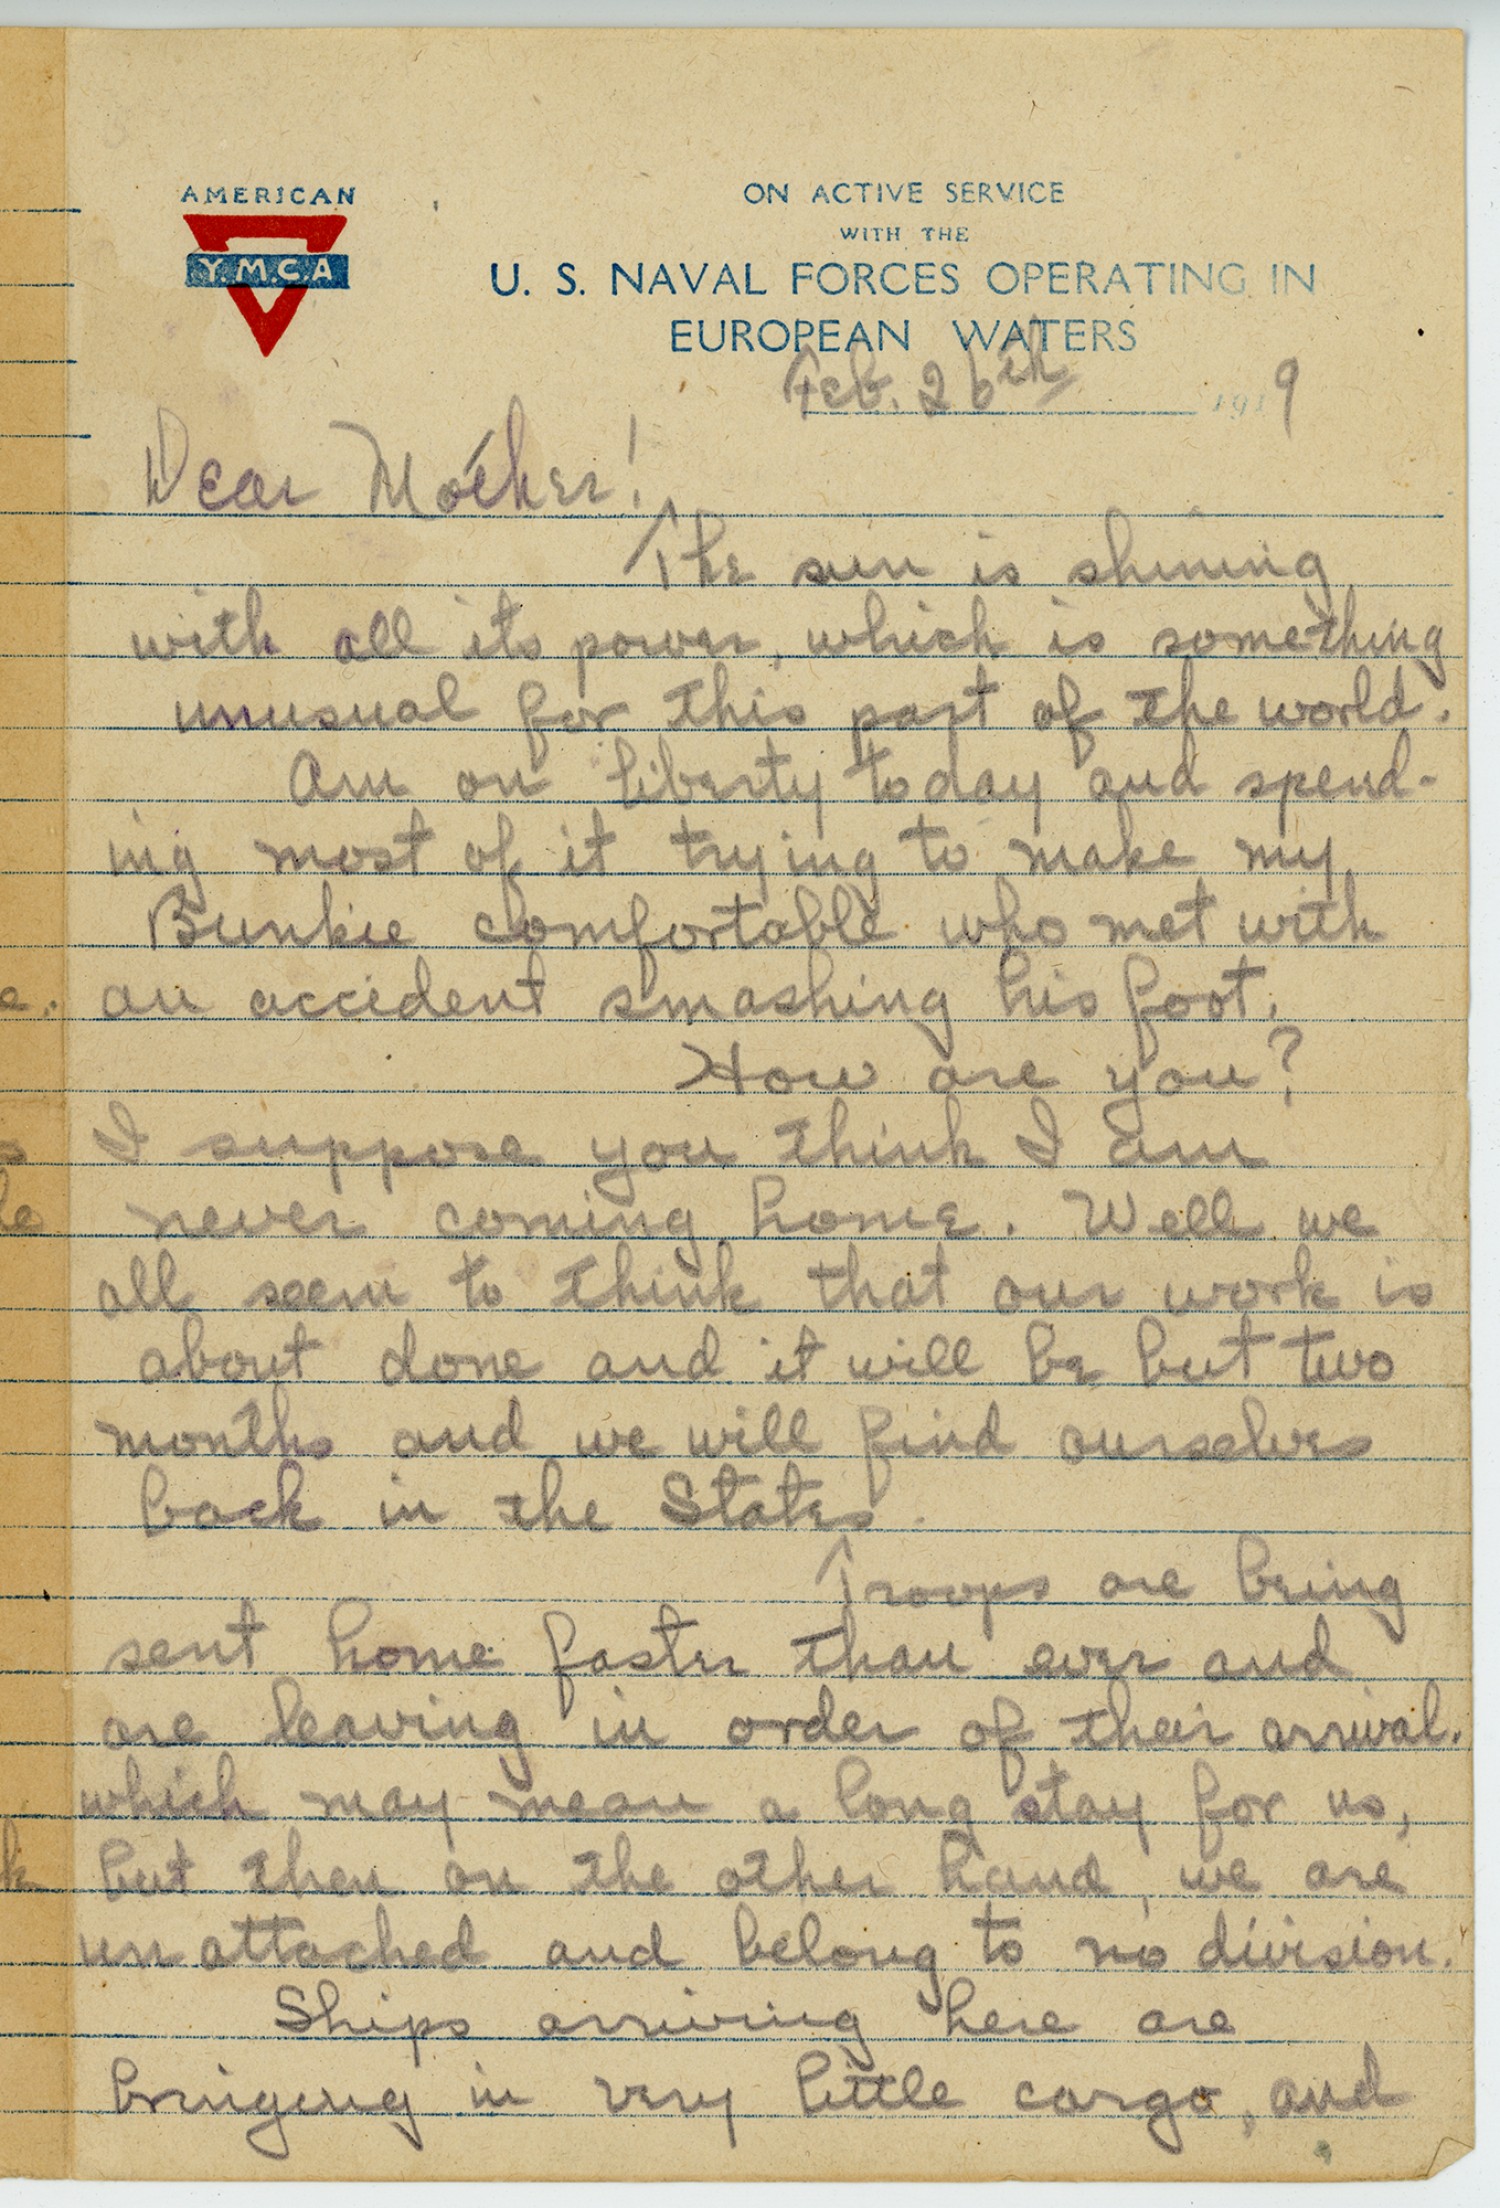 AMERICAN
Y.M.C.A
ON ACTIVE SERVICE
WITH THE
U. S. NAVAL FORCES OPERATING IN
EUROPEAN WATERS
Feb. 26th 1919
Dear Mother!
The sun is shining
with all its power, which is something
unusual for this part of the world.
Am on liberty today and spend-
ing most of it trying to make my
Bunkie comfortable who met with
an accident smashing his foot.
How are you?
I suppose you think I am
never coming home. Well we
all seem to think that our work is
about done and it will be but two
months and we will find ourselves
back in the States.
Troops are being
sent home faster than ever and
are leaving in order of their arrival.
which may mean a long stay for us,
but then on the other hand, we are
unattached and belong to no division.
Ships arriving here are
bringing in very little cargo, and